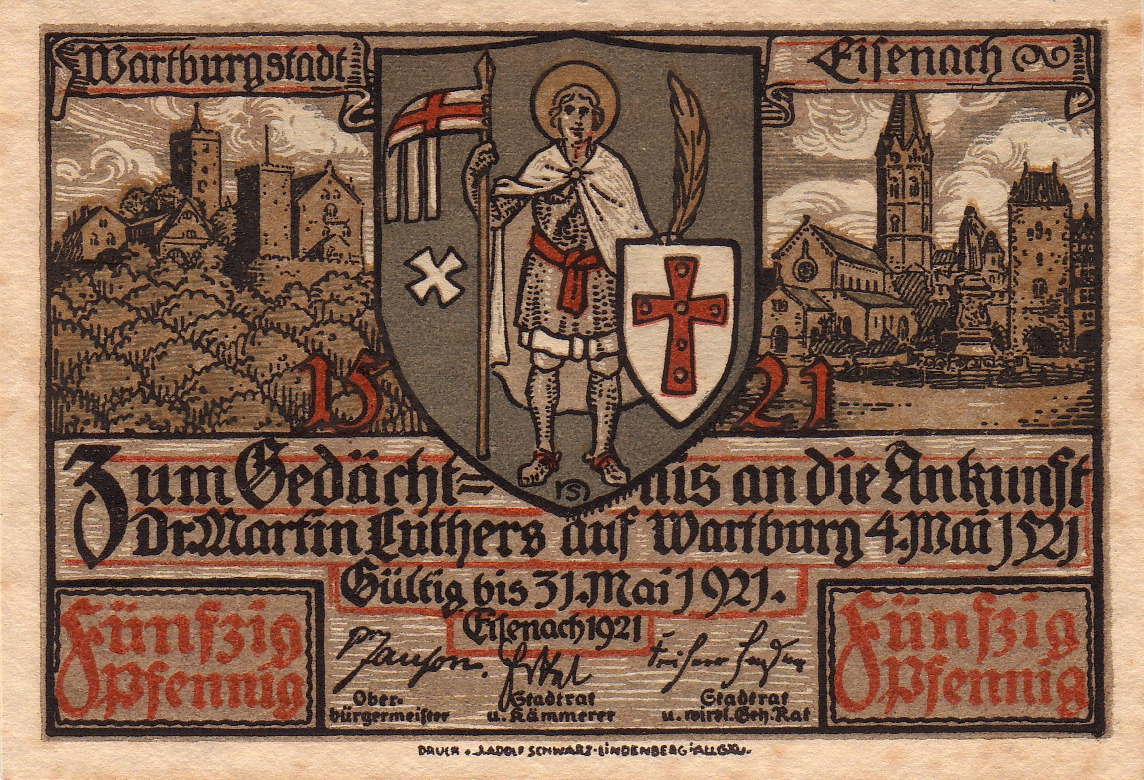 Wartburgstadt
Eisenach
15 21
Zum Gedächt= nis an die Ankunft
Dr. Martin Luthers auf Wartburg 4. Mai 1521
Gültig bis 31. Mai 1921.
Eisenach 1921
Fünfzig
Pfennig
Fünfzig
Pfennig
Ober-
bürgermeister
Stadtrat
u. Kämmerer
Stadtrat
u. wirkl. Geh. Rat
DRUCK • J. ADOLF SCHWARZ • LINDENBERG i/ALLGÄU.